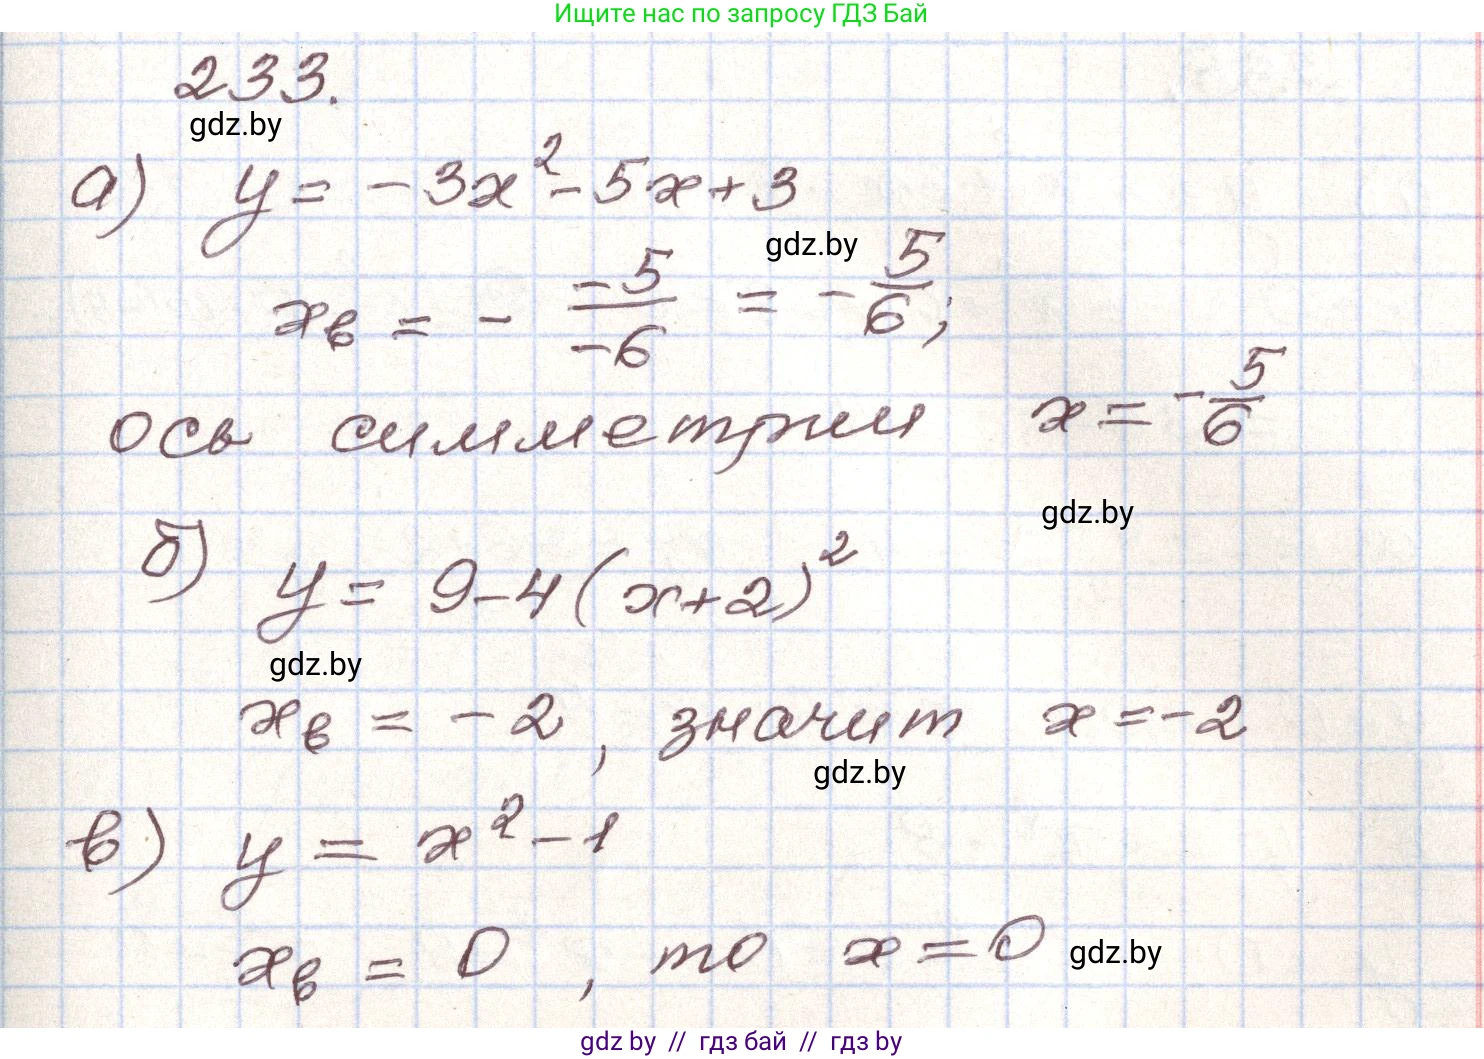 Ищите нас по запросу ГДЗ Бай
233.
gdz.by
а) y = -3x² - 5x + 3
gdz.by
xв = - -5/-6 = -5/6;
ось симметрии x = -5/6
gdz.by
б) y = 9 - 4(x+2)²
gdz.by
xв = -2, значит x = -2
gdz.by
в) y = x² - 1
xв = 0, то x = 0
gdz.by
gdz.by // гдз бай // гдз by